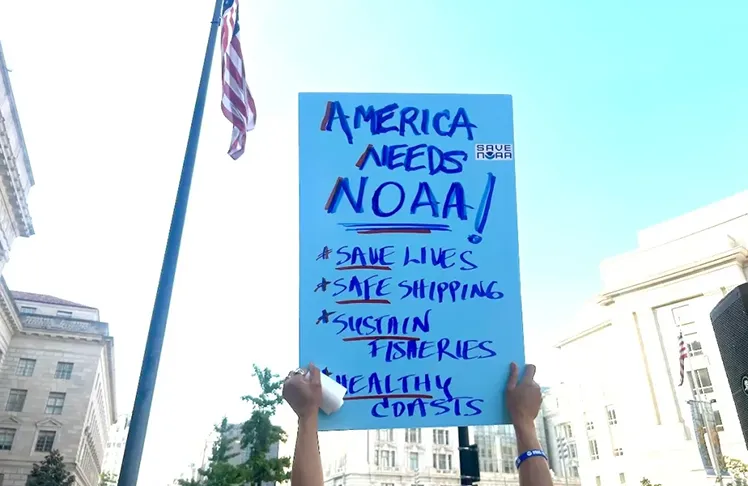 AMERICA
NEEDS
SAVE
NOAA
NOAA!
* SAVE LIVES
* SAFE SHIPPING
* SUSTAIN
FISHERIES
* HEALTHY
COASTS